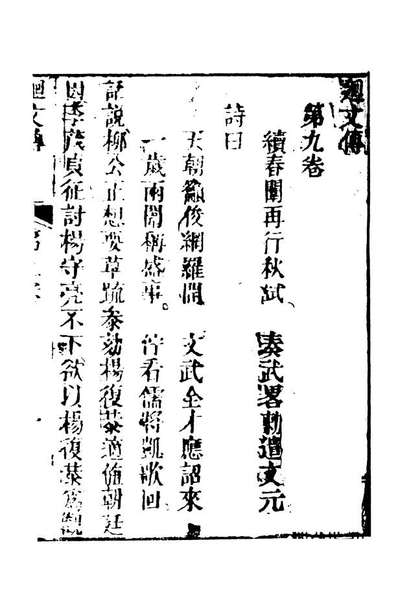 廻文傳
第九卷
續春闈再行秋試　奏武畧勅遣文元
詩曰
天朝籲俊網羅開　文武全才應詔來
一歲兩闈稱盛事。　佇看儒將凱歌回
話說柳公正想要草疏叅劾楊復恭適值朝廷
因李茂貞征討楊守亮不下欲以楊復恭爲觀
廻文傳　第